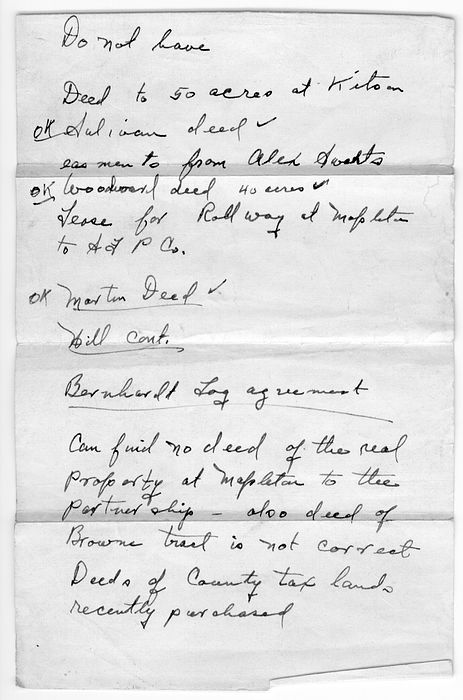 Do not have
Deed to 50 acres at Kitson
OK Sulivan deed ✓
easments from Alex Swarts
OK Woodward deed 40 acres ✓
Lease for Rollway at Mapleton
to A F P Co.
OK Martin Deed ✓
Hill Cont.
Bernhardt Log agreement
Can find no deed of the real
Property at Mapleton to the
Partnership – also deed of
Browne tract is not correct
Deeds of County tax lands
recently purchased